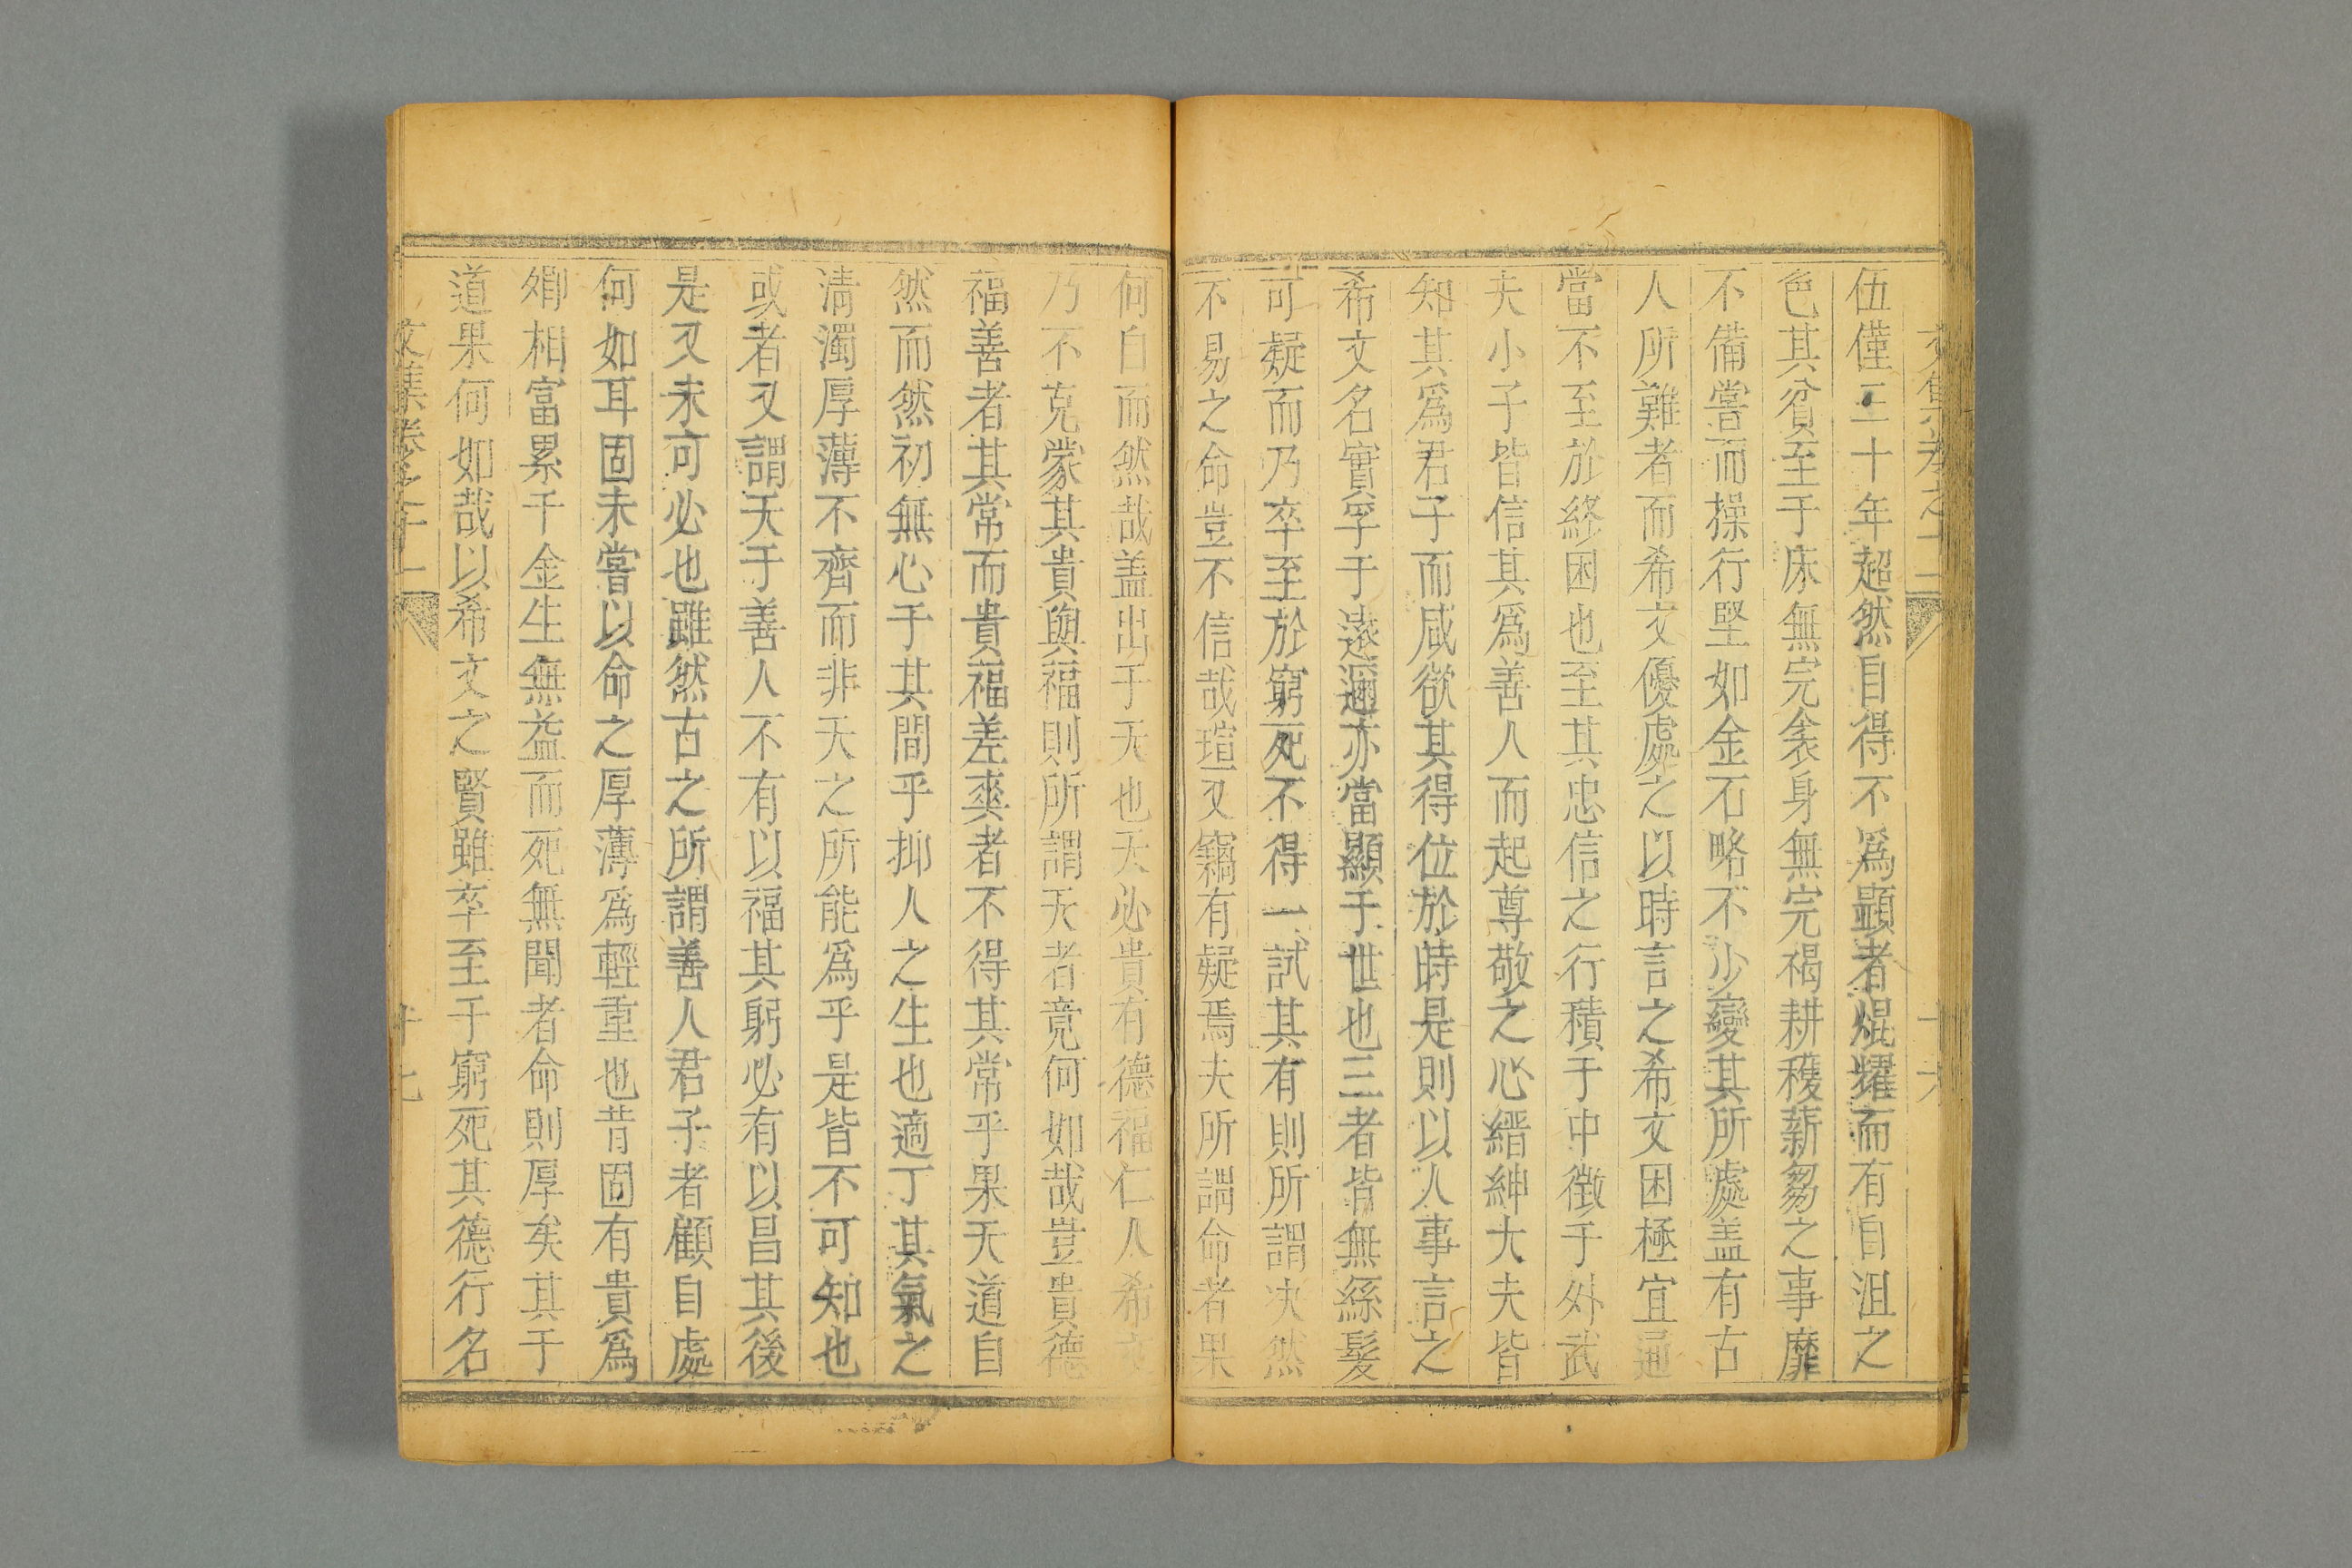 伍僅三十年超然自得不爲顯者焜耀而有自沮之
色其貧至于床無完衾身無完褐耕穫薪芻之事靡
不備嘗而操行堅如金石略不少變其所處盖有古
人所難者而希文優處之以時言之希文困極宜通
當不至於終困也至其忠信之行積于中徵于外武
夫小子皆信其爲善人而起尊敬之心縉紳大夫皆
知其爲君子而咸欲其得位於時是則以人事言之
希文名實孚于遠邇亦當顯于世也三者皆無絲髮
可疑而乃卒至於窮死不得一試其有則所謂决然
不易之命豈不信哉瑄又竊有疑焉夫所謂命者果
何自而然哉盖出于天也天必貴有德福仁人希文
乃不克蒙其貴與福則所謂天者竟何如哉豈貴德
福善者其常而貴福差爽者不得其常乎果天道自
然而然初無心于其間乎抑人之生也適丁其氣之
淸濁厚薄不齊而非天之所能爲乎是皆不可知也
或者又謂天于善人不有以福其躬必有以昌其後
是又未可必也雖然古之所謂善人君子者顧自處
何如耳固未嘗以命之厚薄爲輕重也昔固有貴爲
相富累千金生無益而死無聞者命則厚矣其于
道果何如哉以希文之賢雖卒至于窮死其德行名
文集卷之十二
十七